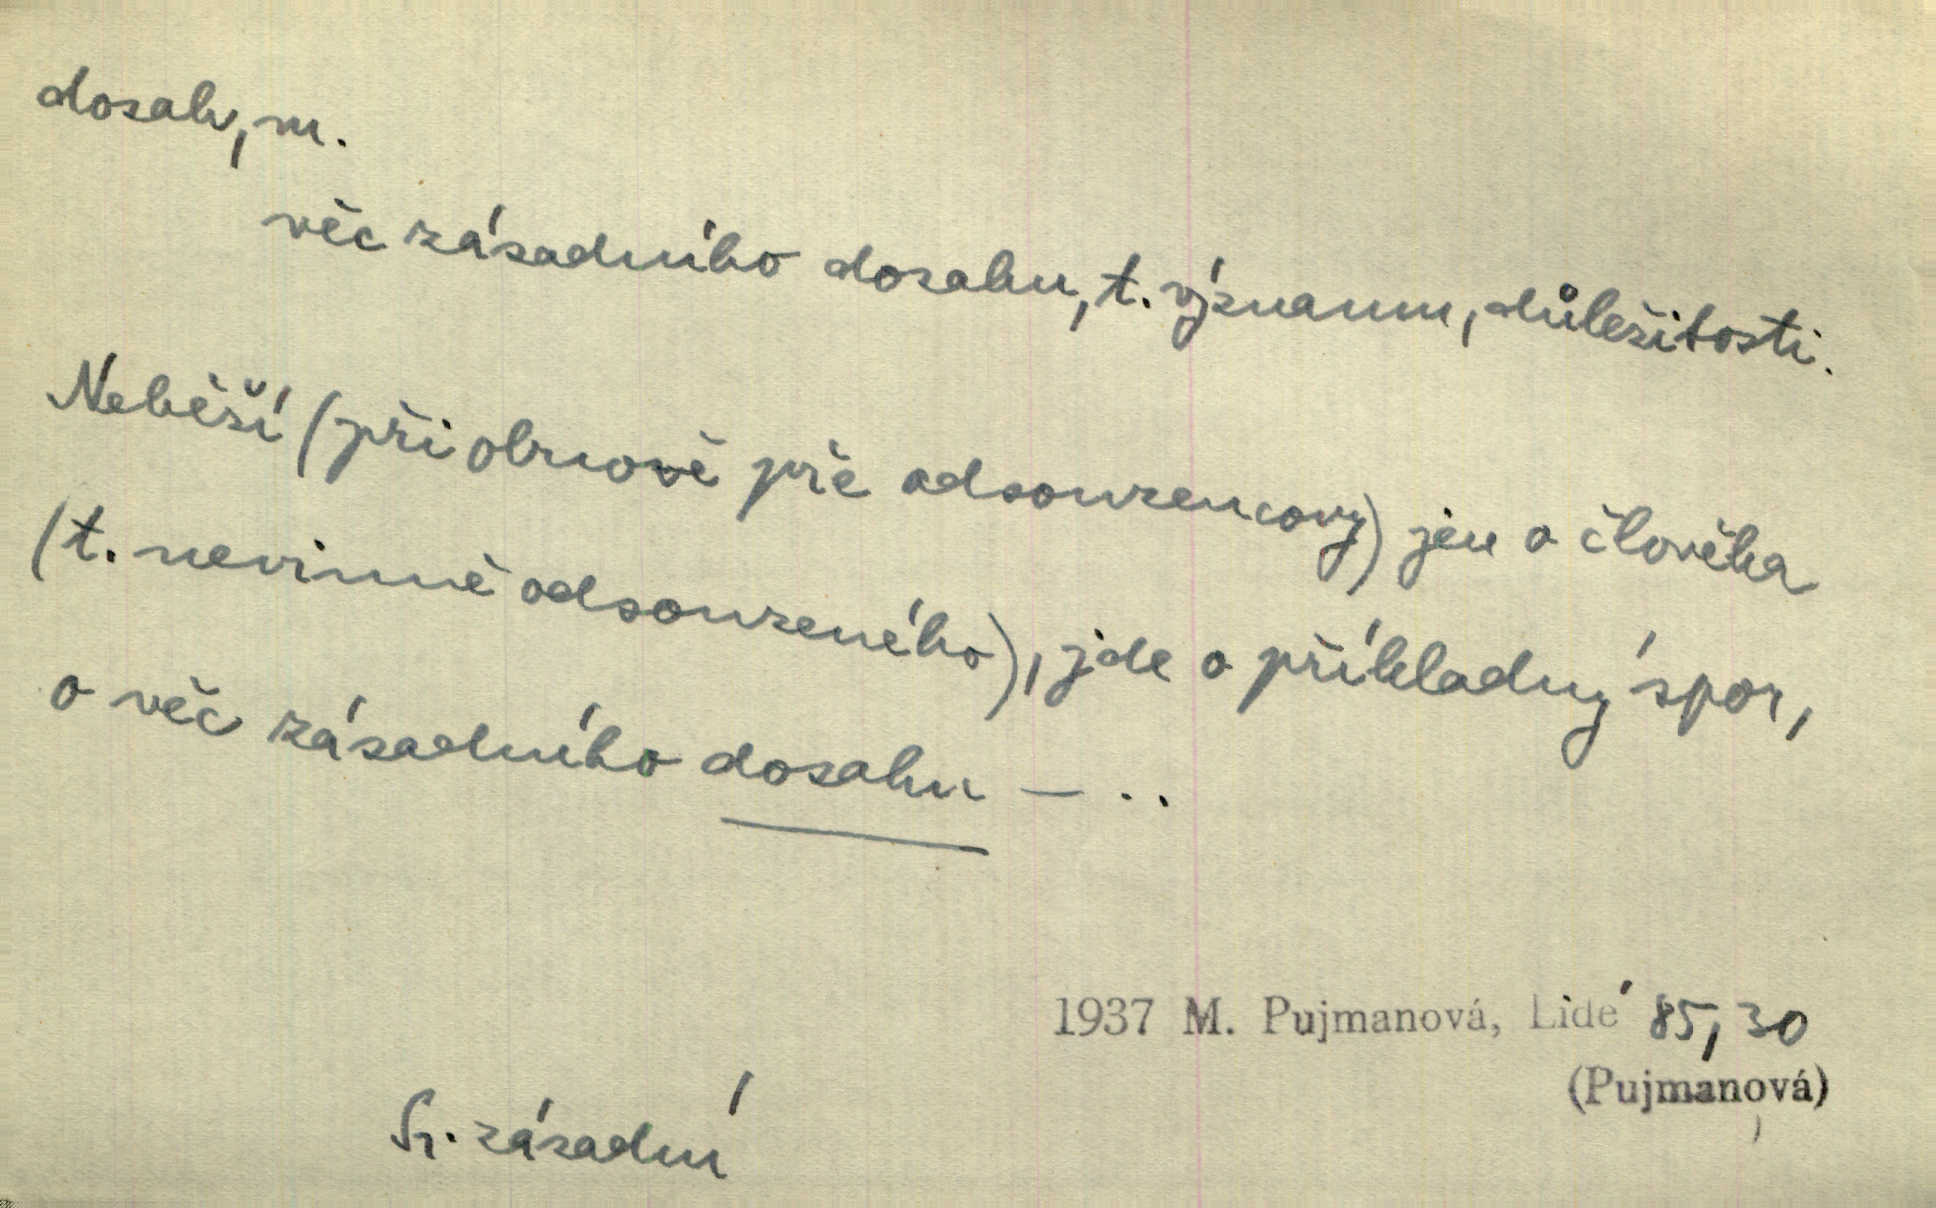 dosah, m.
věc zásadního dosahu, t. významu, důležitosti.
Neběží (při obnově pře odsouzencovy) jen o člověka
(t. nevinně odsouzeného), jde o příkladný spor,
o věc zásadního dosahu — . .
1937 M. Pujmanová, Lidé 85, 30
(Pujmanová)
Sr. zásadní